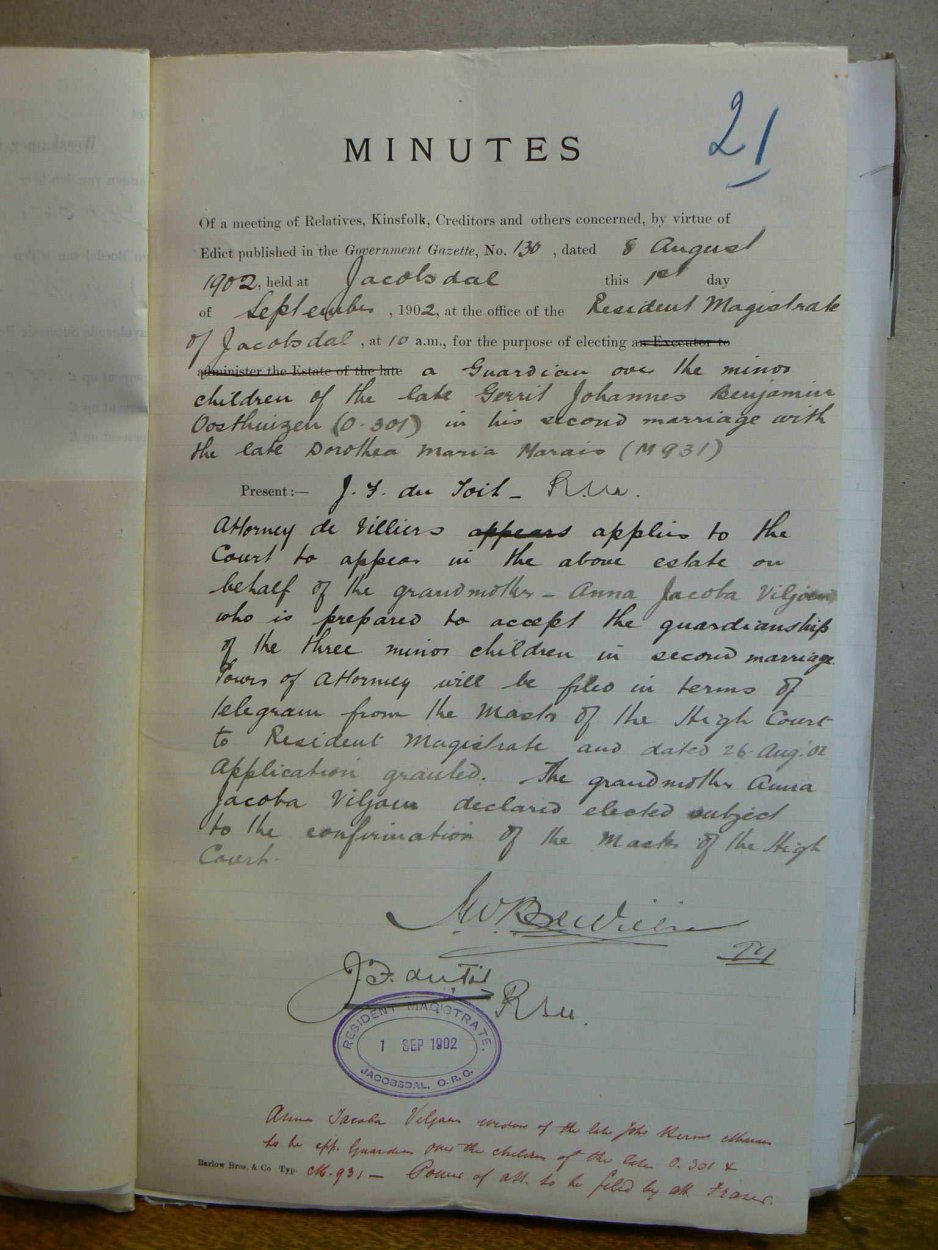 21
MINUTES
Of a meeting of Relatives, Kinsfolk, Creditors and others concerned, by virtue of
Edict published in the Government Gazette, No. 130, dated 8 August
1902, held at Jacobsdal this 1st day
of September, 1902, at the office of the Resident Magistrate
of Jacobsdal, at 10 a.m., for the purpose of electing an Executor to
administer the Estate of the late a Guardian over the minor
children of the late Gerrit Johannes Benjamin
Oosthuizen (O.301) in his second marriage with
the late Dorothea Maria Marais (M931)
Present:— J. F. du Toit – R.M.
Attorney de Villiers appears applies to the
Court to appear in the above estate on
behalf of the grandmother – Anna Jacoba Viljoen
who is prepared to accept the guardianship
of the three minor children in second marriage
Power of Attorney will be filed in terms of
telegram from the Master of the High Court
to Resident Magistrate and dated 26 Aug. '02
Application granted. The grandmother Anna
Jacoba Viljoen declared elected subject
to the confirmation of the Master of the High
Court.
J. F. du Toit
R.M.
RESIDENT MAGISTRATE.
1 SEP 1902
JACOBSDAL, O.R.C.
Anna Jacoba Viljoen widow of the late Marais
to be app. Guardian over the children of the late O.301 &
M.931 — Power of att. to be filed by att. Fraser.
Barlow Bros. & Co Typ.